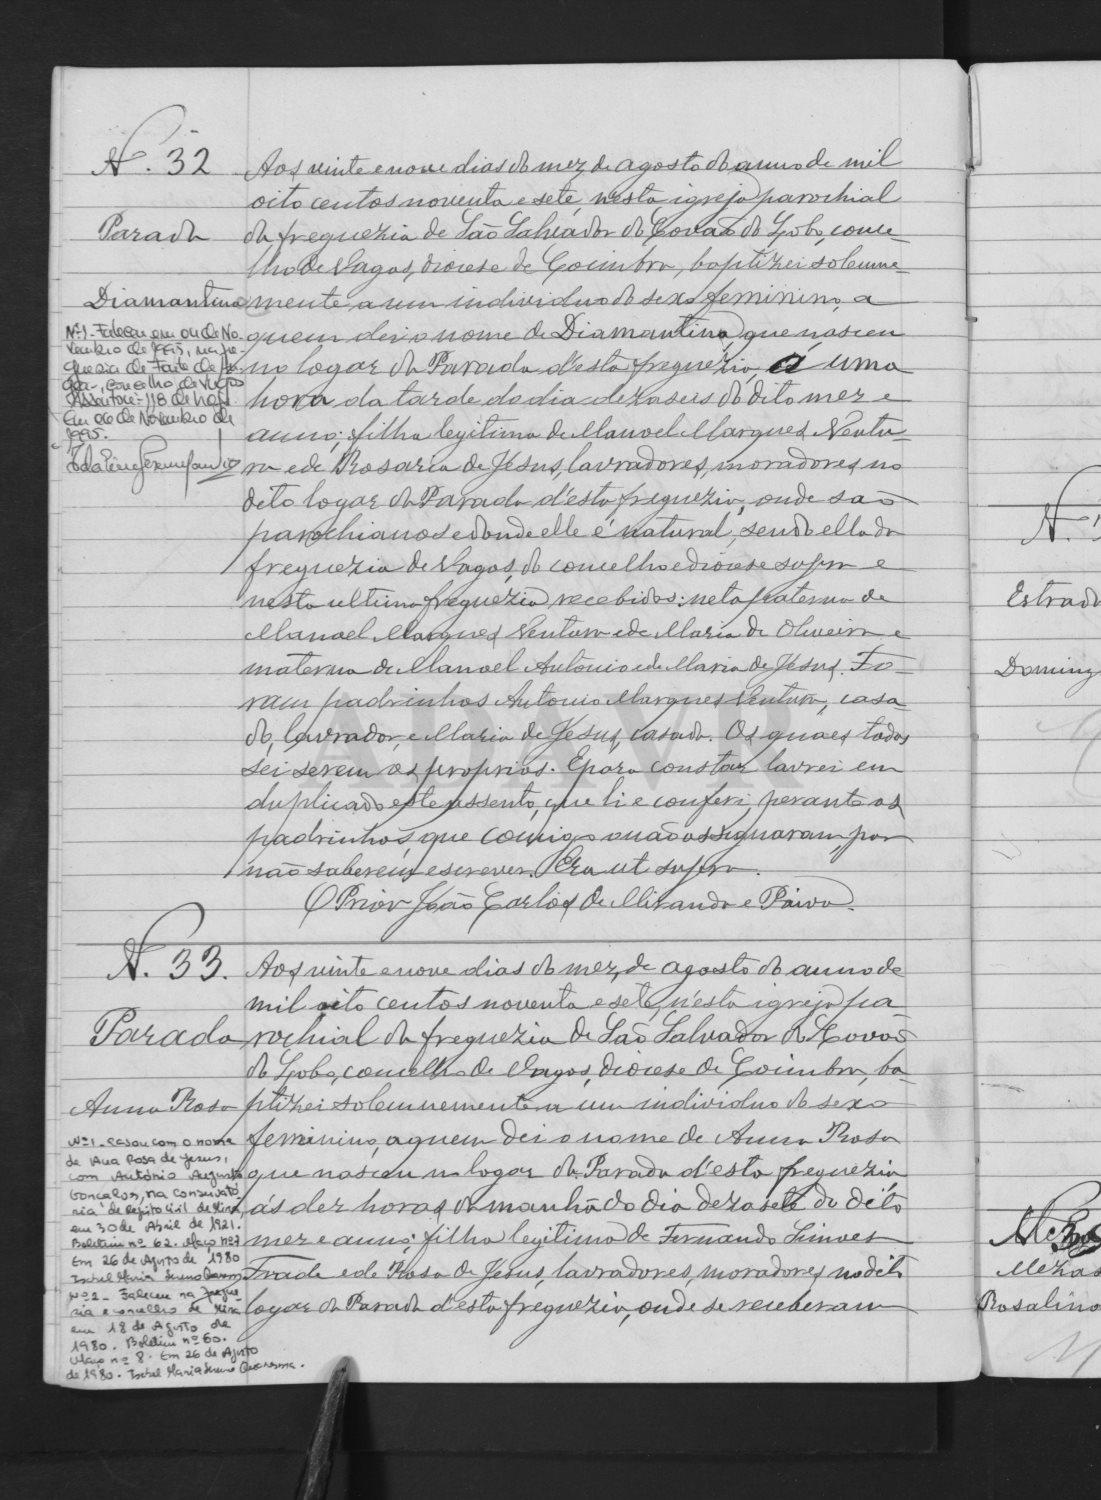 N. 32
Parada
Diamantina
Nº1- Faleceu em um de No-
vembro de 1975, na fre-
guesia de Fonte de
, concelho de Vagos
Assento nº 118 de
Em 06 de Novembro de
1975.
Aos vinte e nove dias do mez de agosto do anno de mil
oito centos noventa e sete, nesta igreja parochial
da freguezia de São Salvador do Covão do Lobo, conce-
lho de Vagos, diocese de Coimbra, baptizei solemne-
mente a um individuo do sexo feminino, a
quem dei o nome de Diamantina, que nasceu
no logar da Parada d'esta freguezia, á uma
hora da tarde do dia dezaseis do dito mez e
anno; filha legitima de Manoel Marques Ventu-
ra e de Rosaria de Jesus, lavradores, moradores no
dito logar da Parada d'esta freguezia, onde são
parochianos e donde elle é natural, sendo ella da
freguezia de Vagos, do concelho e diocese supra e
nesta ultima freguezia recebidos: neta paterna de
Manoel Marques Ventura e de Maria de Oliveira e
materna de Manoel Antonio e de Maria de Jesus. Fo-
ram padrinhos Antonio Marques Ventura, casa-
do, lavrador, e Maria de Jesus, casada. Os quaes todos
sei serem os proprios. E para constar lavrei em
duplicado este assento, que li e conferi, perante os
padrinhos, que comigo o não assignaram, por
não saberem escrever. Era ut supra.
O Prior João Carlos de Miranda e Paiva.
N. 33.
Parada
Anna Rosa
Nº1- Casou com o nome
de Ana Rosa de Jesus,
com António Augusto
Gonçalves, na Conservató-
ria de Registo Civil de Mira,
em 30 de Abril de 1921.
Boletim nº 62. Maço nº 7
Em 26 de Agosto de 1980
Isabel Maria
Nº2- Faleceu na fregue-
sia e concelho de Mira
em 18 de Agosto de
1980. Boletim nº 60.
Maço nº 8. Em 26 de Agosto
de 1980. Isabel Maria Quaresma.
Aos vinte e nove dias do mez de agosto do anno de
mil oito centos noventa e sete, n'esta igreja pa-
rochial da freguezia de São Salvador do Covão
do Lobo, concelho de Vagos, diocese de Coimbra, ba-
ptizei solemnemente a um individuo do sexo
feminino, a quem dei o nome de Anna Rosa
que nasceu no logar da Parada d'esta freguezia,
ás dez horas da manhã do dia dezasete do dito
mez e anno; filha legitima de Fernando Simões
Frade e de Rosa de Jesus, lavradores, moradores no dito
logar da Parada d'esta freguezia, onde se receberam
N.
Estrada
Doming
Rosalino